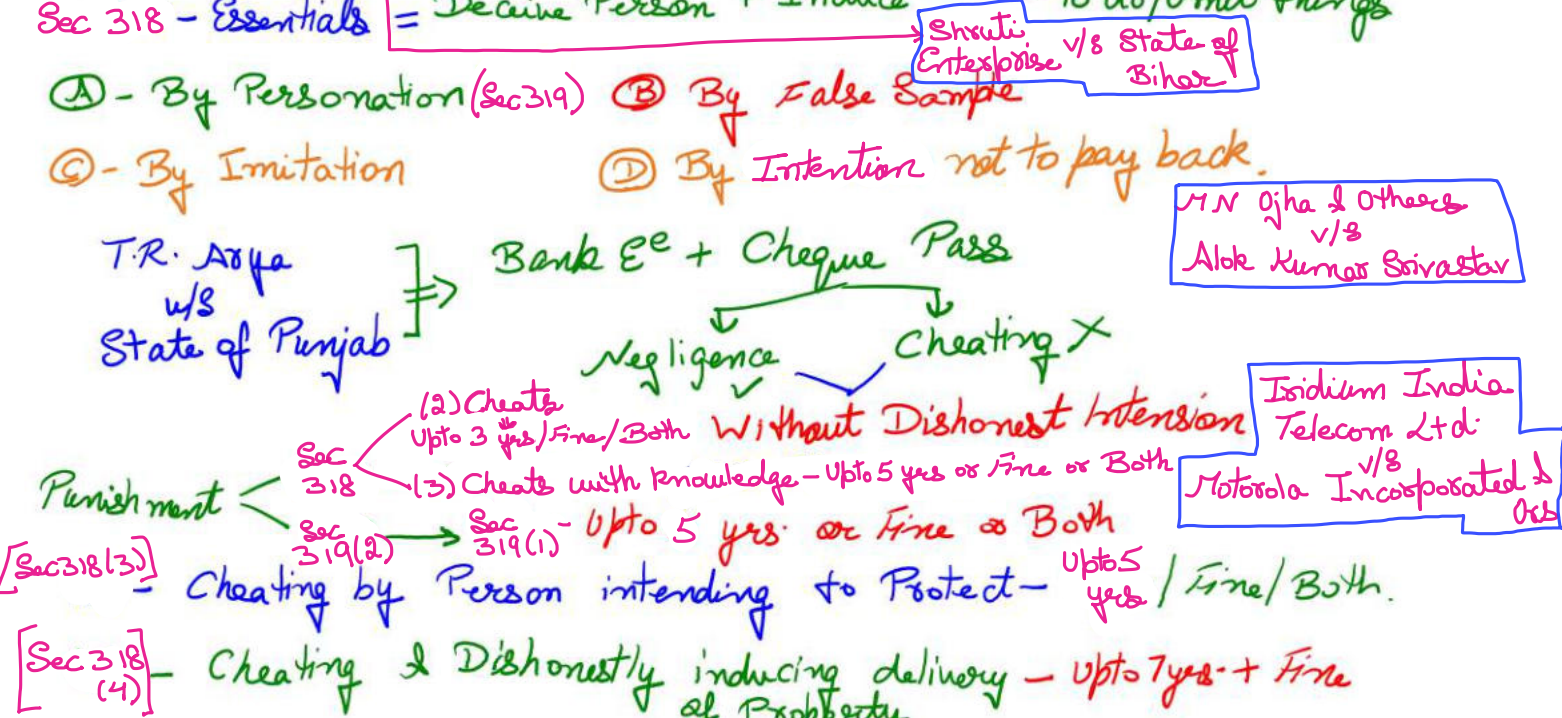 Sec 318 - Essentials = Deceive Person + Induce to do/omit things
Shruti Enterprise v/s State of Bihar
Ⓐ - By Personation (Sec 319) Ⓑ By False Sample
Ⓒ - By Imitation Ⓓ By Intention not to pay back.
MN Ojha & Others
v/s
Alok Kumar Srivastav
T.R. Arya
v/s
State of Punjab
Bank Ee + Cheque Pass
Negligence ✓ Cheating X
Without Dishonest Intension
Iridium India
Telecom Ltd.
v/s
Motorola Incorporated &
Ors
Punishment
Sec 318
(2) Cheats
Upto 3 yrs/Fine/Both
(3) Cheats with knowledge - Upto 5 yrs or Fine or Both
Sec 319(2) → Sec 319(1) - Upto 5 yrs. or Fine or Both
[Sec 318(3)] - Cheating by Person intending to Protect - Upto 5 yrs / Fine / Both.
[Sec 318 (4)] - Cheating & Dishonestly inducing delivery - Upto 7 yrs. + Fine
of Property